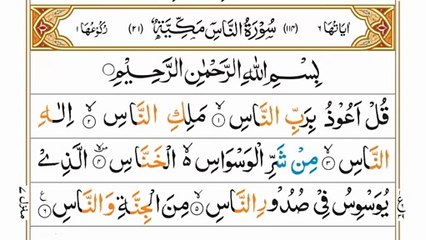 اٰیَاتُهَا ٦ (١١٤) سُوْرَةُ النَّاسِ مَكِّیَّةٌ (٢١) رُكُوْعُهَا ١
بِسْمِ اللهِ الرَّحْمٰنِ الرَّحِیْمِ
قُلْ اَعُوْذُ بِرَبِّ النَّاسِ ۙ﴿١﴾ مَلِكِ النَّاسِ ۙ﴿٢﴾ اِلٰهِ
النَّاسِ ۙ﴿٣﴾ مِنْ شَرِّ الْوَسْوَاسِ ۙ۬ الْخَنَّاسِ ۪ۙ﴿٤﴾ الَّذِیْ
یُوَسْوِسُ فِیْ صُدُوْرِ النَّاسِ ۙ﴿٥﴾ مِنَ الْجِنَّةِ وَالنَّاسِ ﴿٦﴾
منزل ٧